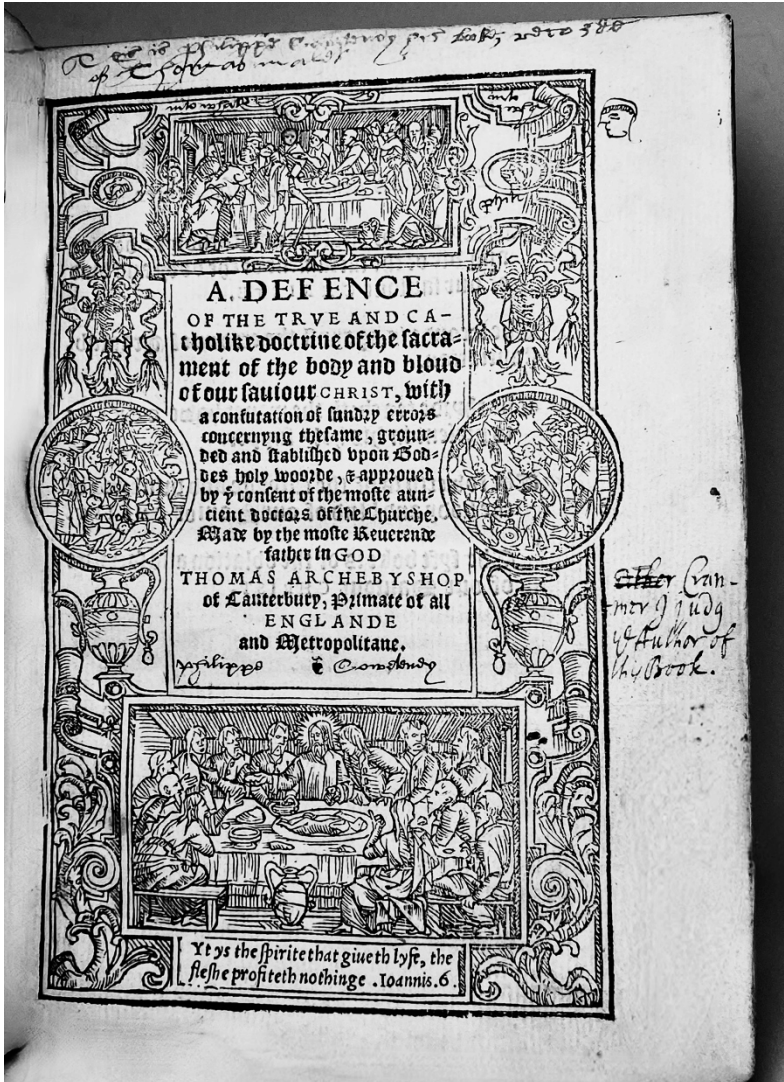 is Philippe Cowrtendy his boke,
of Thomas
into what
into what
phili
A DEFENCE
OF THE TRVE AND CA-
tholike doctrine of the sacra-
ment of the body and bloud
of our sauiour CHRIST, with
a confutation of sundry errors
concernyng thesame, groun-
ded and stablished vpon God-
des holy woorde, & approued
by ẙ consent of the moste aun-
cient doctors of the Churche.
Made by the moste Reuerende
father in GOD
THOMAS ARCHEBYSHOP
of Canterbury, Primate of all
ENGLANDE
and Metropolitane.
Philippe
Cran-
mer I judg
ye Author of
thy Book.
Yt ys the spirite that giueth lyfe, the
fleshe profiteth nothinge. Ioannis. 6.